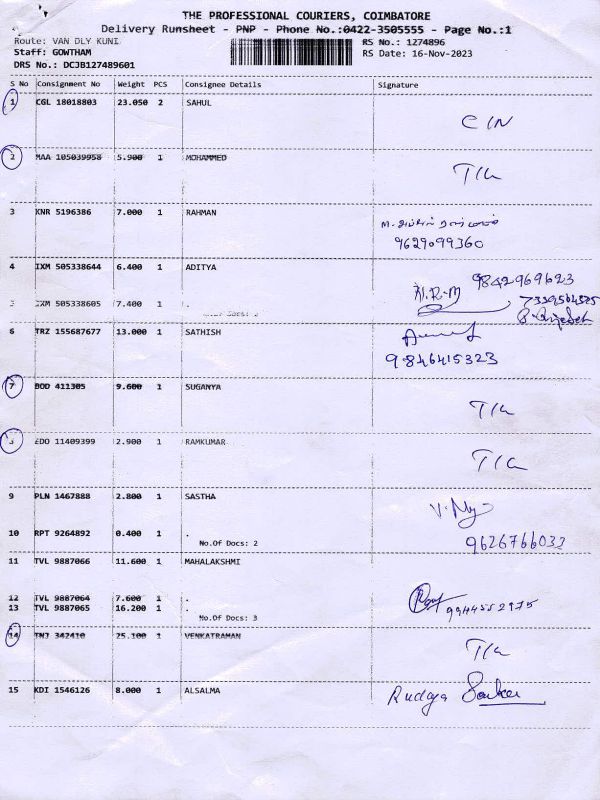 THE PROFESSIONAL COURIERS, COIMBATORE
Delivery Runsheet - PNP - Phone No.:0422-3505555 - Page No.:1
Route: VAN DLY KUNI RS No.: 1274896
Staff: GOWTHAM RS Date: 16-Nov-2023
DRS No.: DCJB127489601
S No Consignment No Weight PCS Consignee Details Signature
1 CGL 18018803 23.050 2 SAHUL
C/N
2 MAA 105039958 5.900 1 MOHAMMED
T/G
3 KNR 5196386 7.000 1 RAHMAN
9629099360
4 IXM 505338644 6.400 1 ADITYA
9842969623
5 IXM 505338605 7.400 1 .
No.Of Docs: 2
6 TRZ 155687677 13.000 1 SATHISH
9846415323
7 BOD 411305 9.600 1 SUGANYA
T/G
8 EDO 11409399 2.900 1 RAMKUMAR
T/G
9 PLN 1467888 2.800 1 SASTHA
10 RPT 9264892 0.400 1 .
No.Of Docs: 2
9626766033
11 TVL 9887066 11.600 1 MAHALAKSHMI
12 TVL 9887064 7.600 1 .
13 TVL 9887065 16.200 1 .
No.Of Docs: 3
14 TNJ 342410 25.100 1 VENKATRAMAN
T/G
15 KDI 1546126 8.000 1 ALSALMA